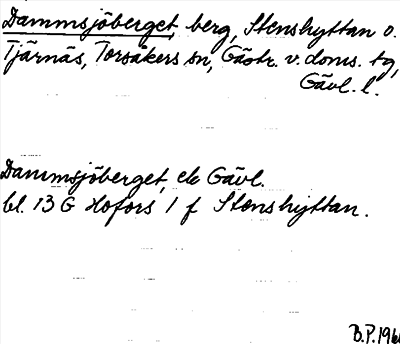 Dammsjöberget, berg, Stenshyttan o.
Tjärnäs, Torsåkers sn, Gästr. v. doms. tg,
Gävl. l.
Dammsjöberget, ek Gävl.
bl. 13 G Hofors 1 f Stenshyttan.
B.P.